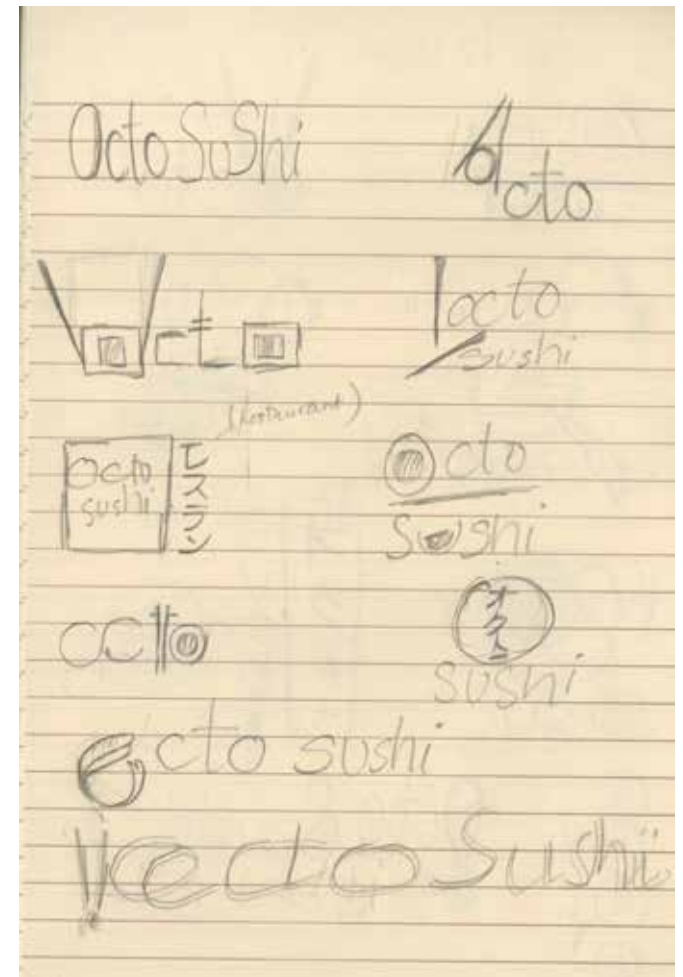 Octo SuShi
Octo
octo
octo
sushi
(Restaurant)
Octo
sushi
ヒスラン
Octo
Sushi
octo
オクト
sushi
Octo sushi
octo Sushi